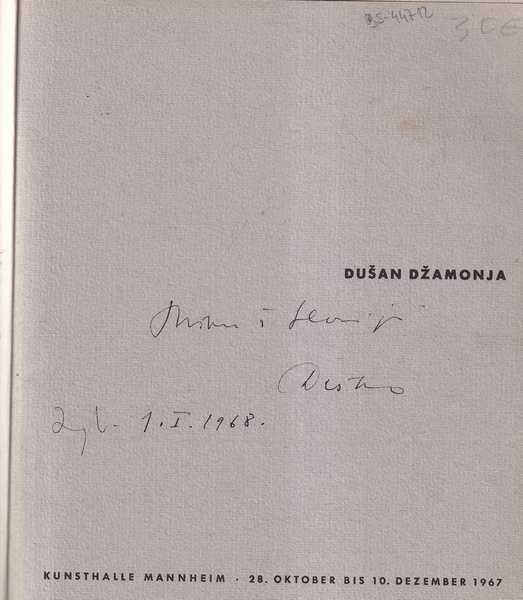 BS-4472
30€
DUŠAN DŽAMONJA
i
Duško
Zgb. 1. I. 1968.
KUNSTHALLE MANNHEIM · 28. OKTOBER BIS 10. DEZEMBER 1967